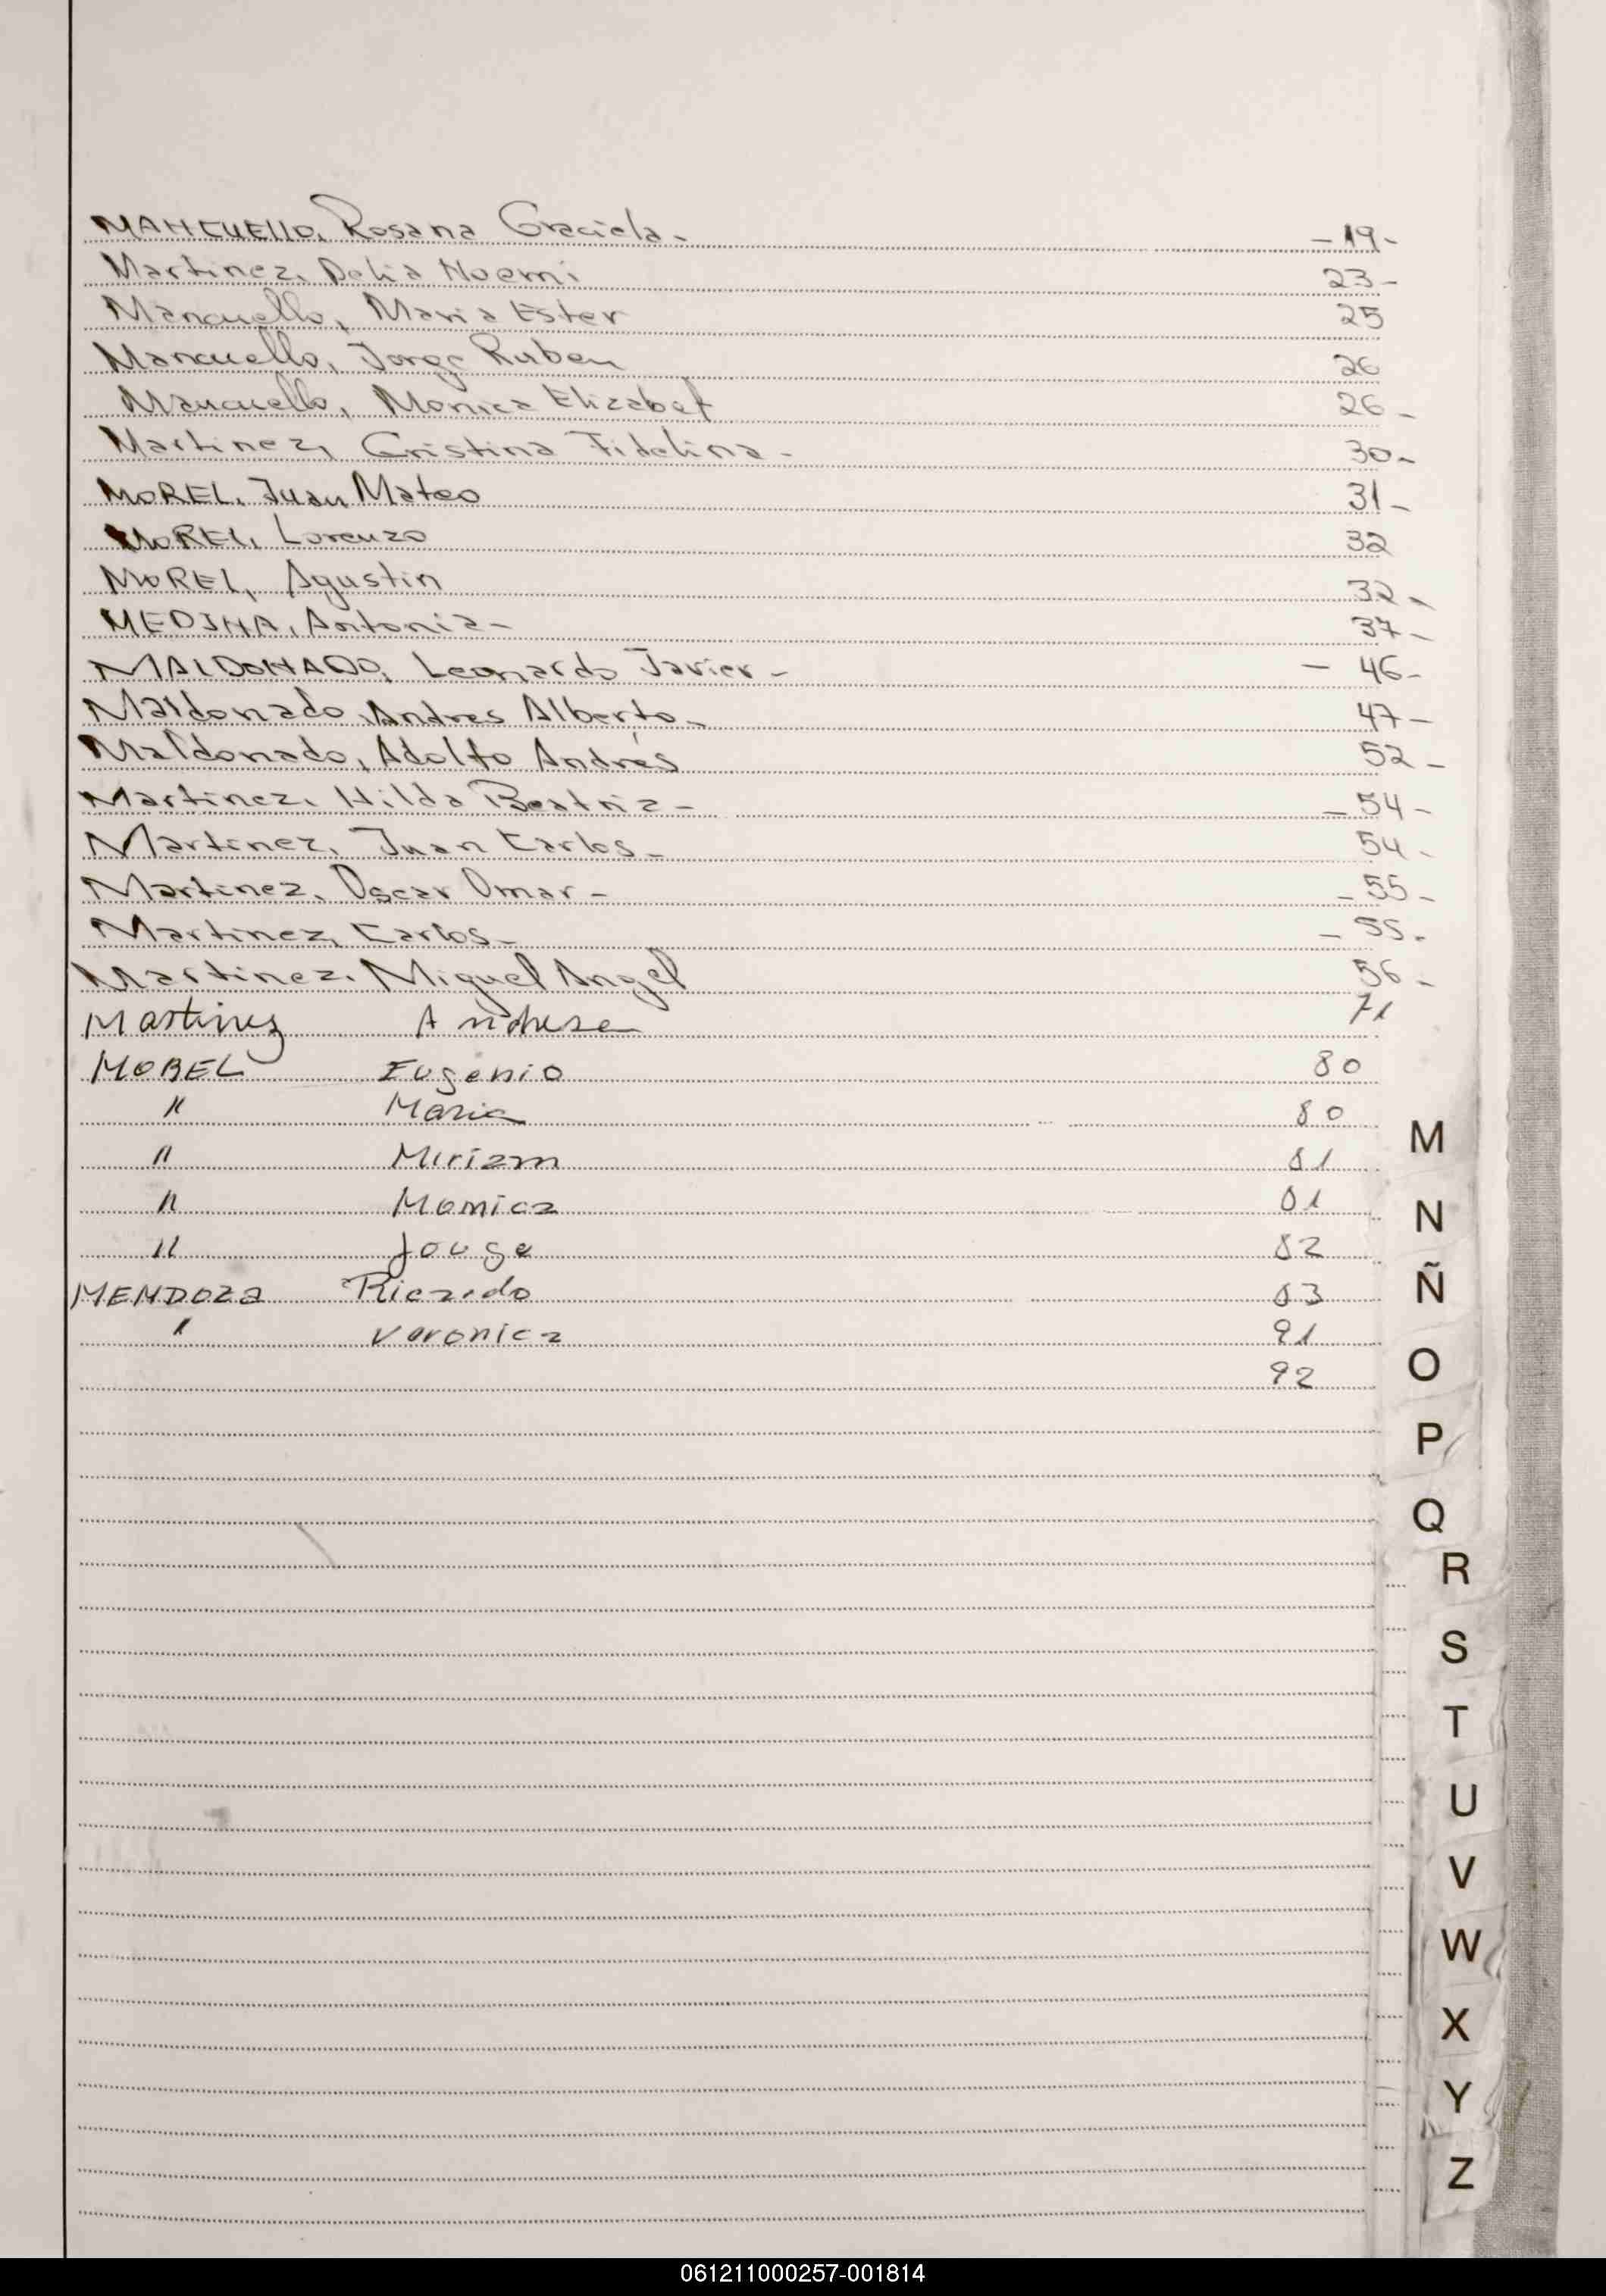 MANCUELLO, Rosana Graciela. - 19 -
Martinez, Delia Noemi 23 -
Mancuello, Maria Ester 25
Mancuello, Jorge Ruben 26
Mancuello, Monica Elizabet 26 -
Martinez, Cristina Fidelina - 30 -
MOREL, Juan Mateo 31 -
MOREL, Lorenzo 32
MOREL, Agustin 32 -
MEDINA, Antonia - 37 -
MALDONADO, Leonardo Javier - - 46 -
Maldonado, Andres Alberto - 47 -
Maldonado, Adolfo Andrés 52 -
Martinez, Hilda Beatriz - - 54 -
Martinez, Juan Carlos - 54 -
Martinez, Oscar Omar - - 55 -
Martinez, Carlos - - 55 -
Martinez, Miguel Angel 56 -
Martinez 71
MOREL Eugenio 80
" Maria 80
" Miriam 81
" Monica 81
" Jorge 82
MENDOZA Ricardo 83
" Veronica 91
92
M
N
Ñ
O
P
Q
R
S
T
U
V
W
X
Y
Z
061211000257-001814